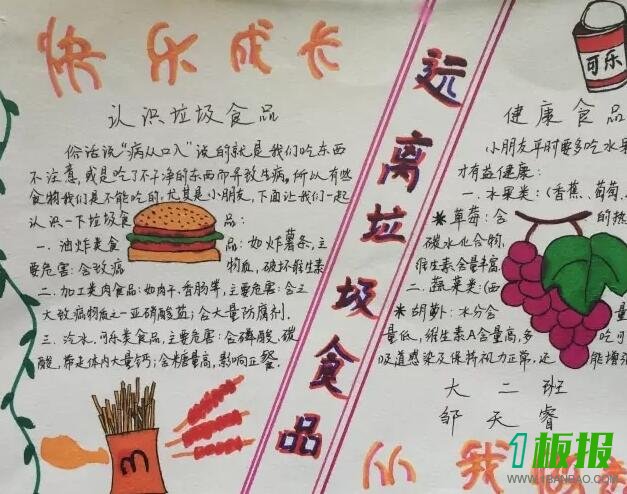 快乐成长
认识垃圾食品
俗话说“病从口入”说的就是我们吃东西
不注意,或是吃了不干净的东西而导致生病。所以有些
食物我们是不能吃的,尤其是小朋友,下面让我们一起
认识一下垃圾食品:
一.油炸类食品:如炸薯条,主
要危害:含致癌物质,破坏维生素
二.加工类肉食品:如肉干、香肠等,主要危害:含三
大致病物质之一亚硝酸盐;含大量防腐剂.
三.汽水、可乐类食品,主要危害:含磷酸、碳
酸,带走体内大量钙;含糖量高,影响正餐.
远离垃圾食品
可乐
健康食品
小朋友平时要多吃水果
才有益健康:
一.水果类:(香蕉、葡萄、
*草莓:含的热
碳水化合物,
维生素含量丰富
二.蔬菜类:(西
*胡萝卜:水分含量
量低,维生素A含量高,多吃可
吸道感染及保持视力正常,还能增强
大二班
邹天睿
我
1板报
WWW.1BANBAO.COM